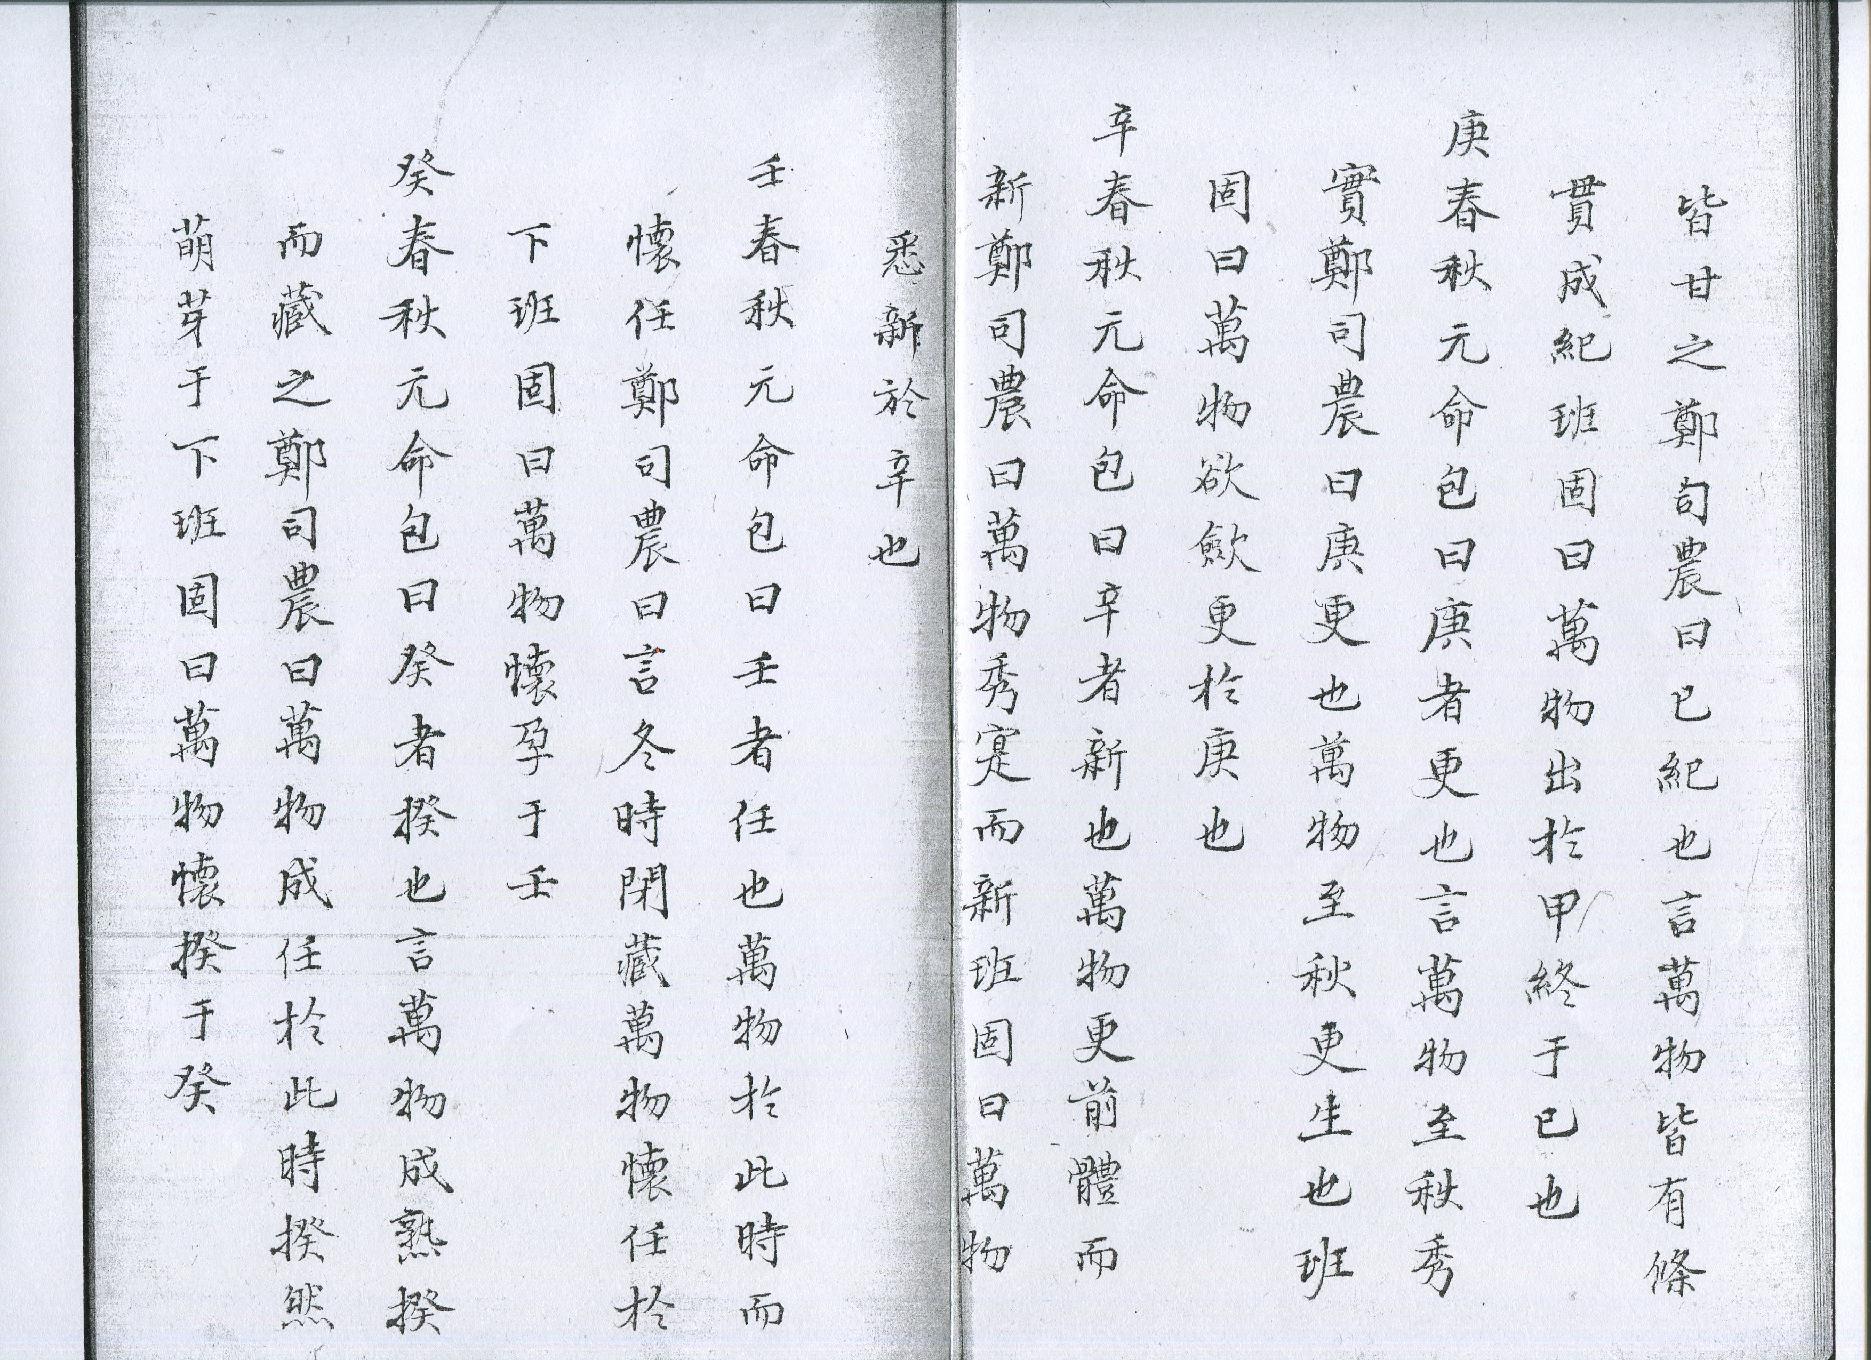 皆甘之鄭司農曰己紀也言萬物皆有條
貫成紀班固曰萬物出於甲終于己也
庚春秋元命包曰庚者更也言萬物至秋秀
實鄭司農曰庚更也萬物至秋更生也班
固曰萬物欲斂更於庚也
辛春秋元命包曰辛者新也萬物更前體而
新鄭司農曰萬物秀寔而新班固曰萬物
悉新於辛也
壬春秋元命包曰壬者任也萬物於此時而
懷任鄭司農曰言冬時閉藏萬物懷任於
下班固曰萬物懷孕于壬
癸春秋元命包曰癸者揆也言萬物成熟揆
而藏之鄭司農曰萬物成任於此時揆然
萌芽于下班固曰萬物懷揆于癸